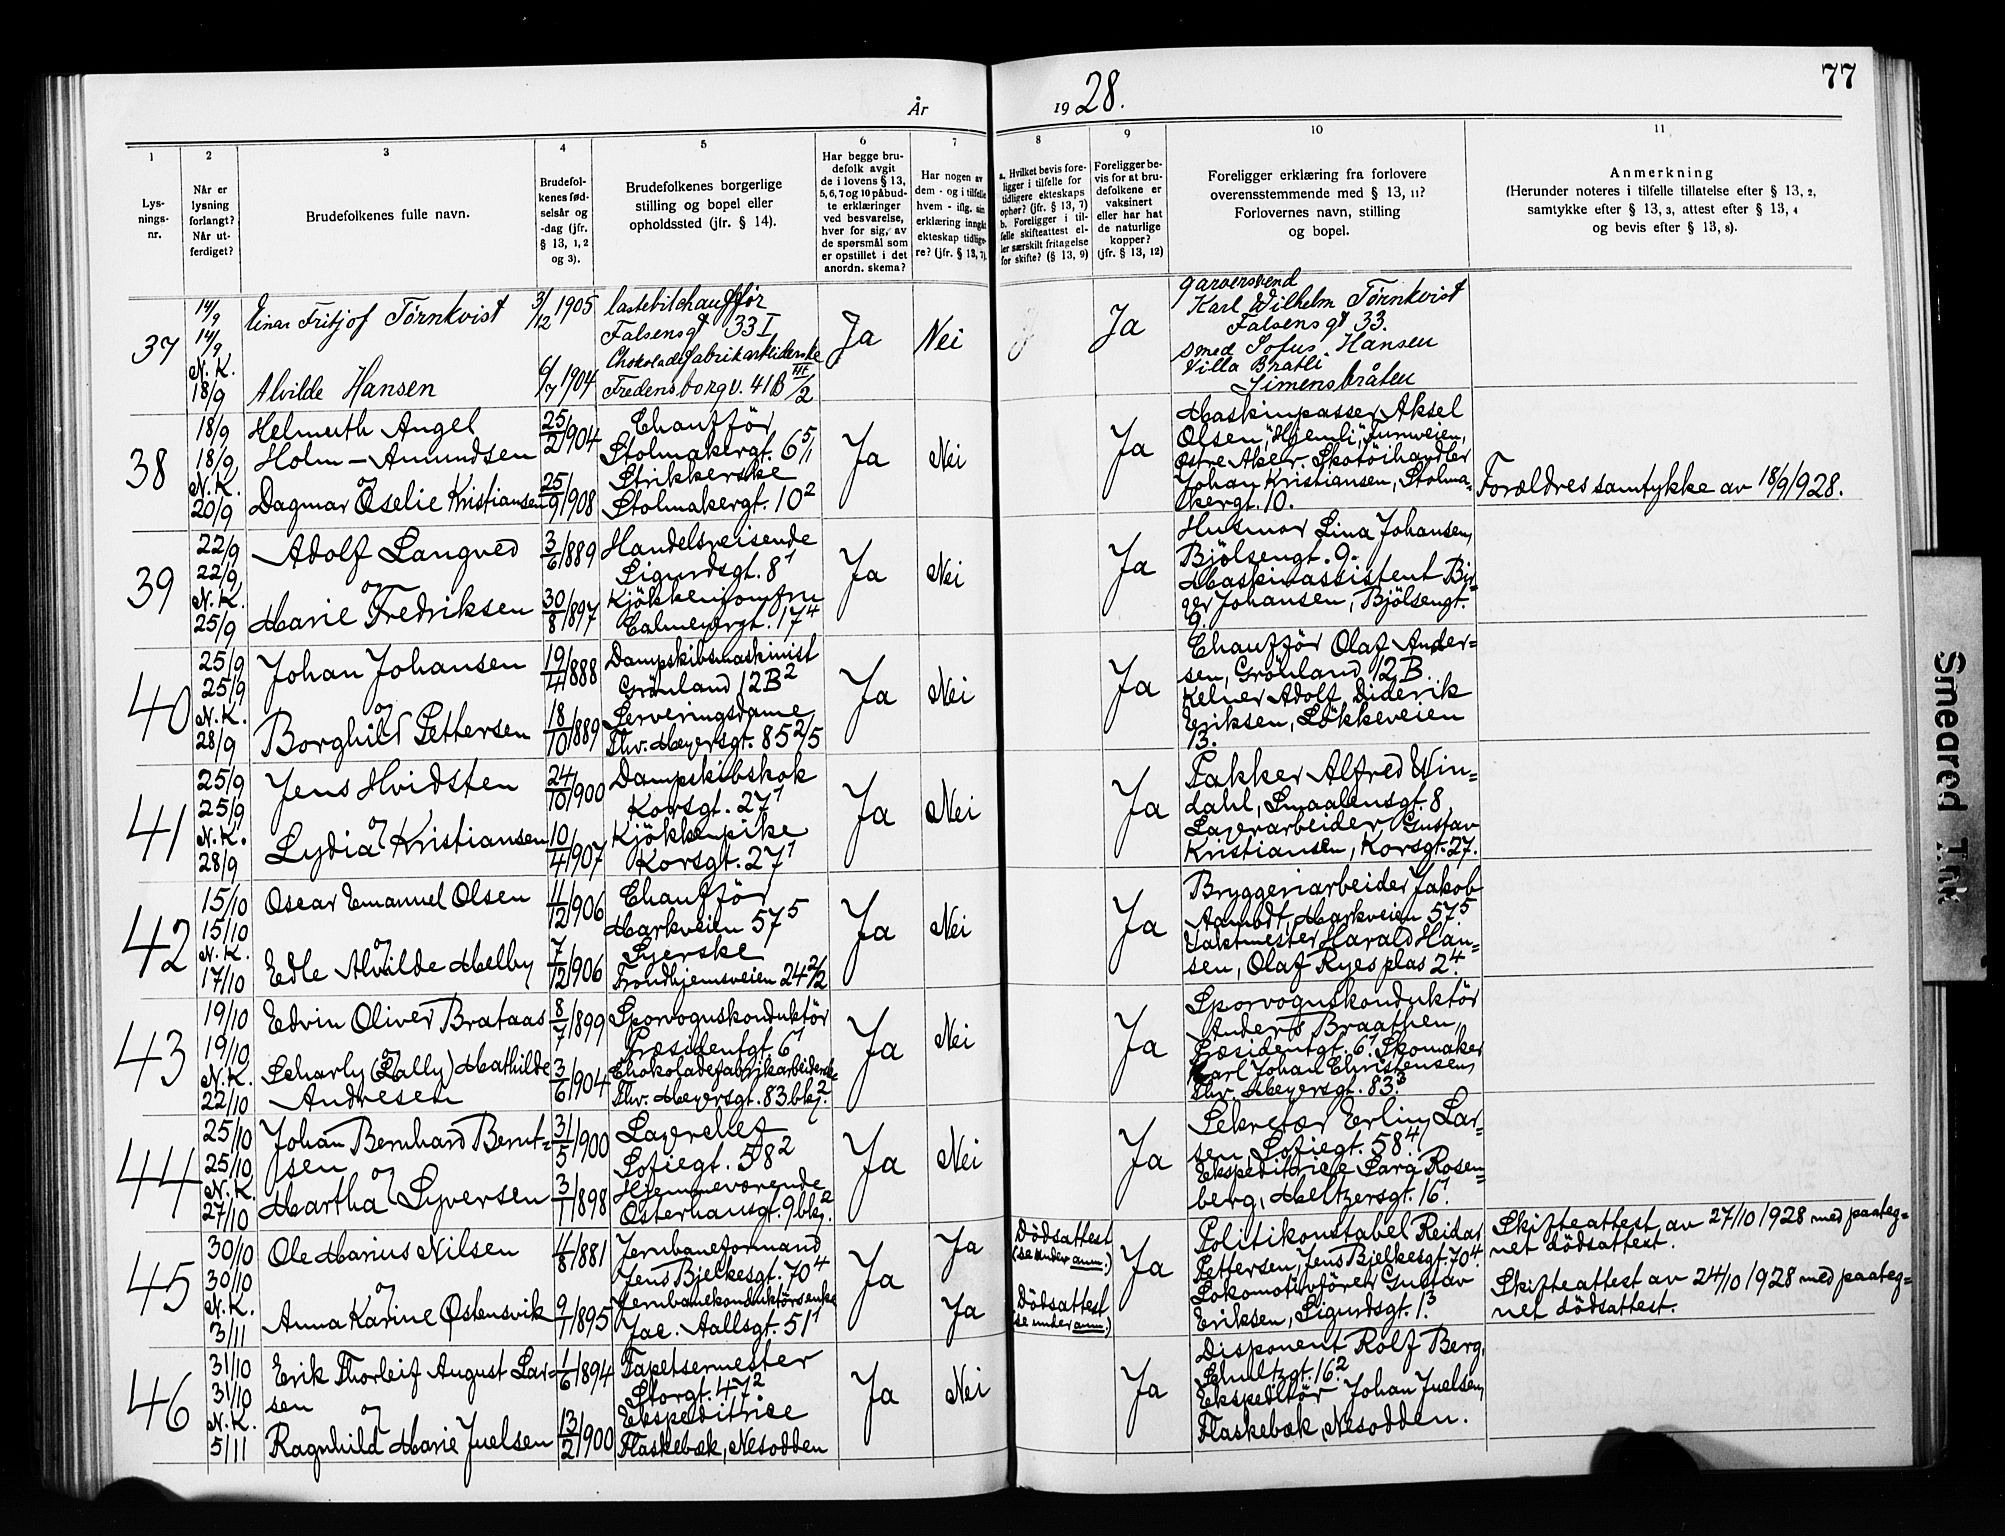 År 1928.
77
1
2
3
4
5
6
7
8
9
10
11
Lys-
nings-
nr.
Når er
lysning
forlangt?
Når ut-
ferdiget?
Brudefolkenes fulle navn.
Brudefol-
kenes fød-
selsår og
-dag (jfr.
§ 13, 1, 2
og 3).
Brudefolkenes borgerlige
stilling og bopel eller
opholdssted (jfr. § 14).
Har begge bru-
defolk avgit
de i lovens § 13,
5, 6, 7 og 10 påbud-
te erklæringer
ved besvarelse,
hver for sig, av
de spørsmål som
er opstillet i det
anordn. skema?
Har nogen av
dem - og i tilfelle
hvem - iflg. sin
erklæring inngåt
ekteskap tidlige-
re? (jfr. § 13, 7).
a. Hvilket bevis fore-
ligger i tilfelle for
tidligere ekteskaps
ophør? (jfr. § 13, 7)
b. Foreligger i til-
felle skifteattest el-
ler særskilt fritagelse
for skifte? (§ 13, 9)
Foreligger be-
vis for at bru-
defolkene er
vaksinert
eller har hat
de naturlige
kopper?
(jfr. § 13, 12)
Foreligger erklæring fra forlovere
overensstemmende med § 13, 11?
Forlovernes navn, stilling
og bopel.
Anmerkning
(Herunder noteres i tilfelle tillatelse efter § 13, 2,
samtykke efter § 13, 3, attest efter § 13, 4
og bevis efter § 13, 8).
37
14/9
14/9
N. K.
18/9
Einar Fritjof Törnkvist
Alvilde Hansen
3/12 1905
6/7 1904
Lastebilchauffør
Falsensgt 33 I
Chokoladefabrikarbeiderske
Fredensborgv. 41B III/2
Ja
Nei
Ja
garversvend
Karl Wilhelm Törnkvist
Falsensgt 33.
Smed Sofus Hansen
Villa Bratli
Simensbråten
38
18/9
18/9
N. K.
20/9
Helmuth Angel
Holm-Amundsen
og
Dagmar Oselie Kristiansen
25/2 1904
25/9 1908
Chaufför
Stolmakergt. 6 5/1
Strikkerske
Stolmakergt. 10 2
Ja
Nei
Ja
Maskinpasser Aksel
Olsen, "Hjemli", Furuveien,
Østre Aker. Skotöihandler
Johan Kristiansen, Stolma-
kergt. 10.
Forældres samtykke av 18/9 1928.
39
22/9
22/9
N. K.
25/9
Adolf Langved
og
Marie Fredriksen
3/6 1889
30/8 1897
Handelsreisende
Sigurdsgt. 8 1
Kjökkenjomfru
Calmeyergt. 17 4
Ja
Nei
Ja
Husmor Lina Johansen,
Bjölsengt. 9.
Maskinassistent Bir-
ger Johansen, Bjölsengt.
9.
40
25/9
25/9
N. K.
28/9
Johan Johansen
og
Borghild Pettersen
19/4 1888
18/10 1889
Dampskibsmaskinist
Grönland 12 B 2
Serveringsdame
Thv. Meyersgt. 85 2/5
Ja
Nei
Ja
Chaufför Olaf Ander-
sen, Grönland 12 B.
Kelner Adolf Diderik
Eriksen, Lökkeveien
13.
41
25/9
25/9
N. K.
28/9
Jens Hvidsten
og
Lydia Kristiansen
24/10 1900
10/4 1907
Dampskibskok
Korsgt. 27 1
Kjökkenpike
Korsgt. 27 1
Ja
Nei
Ja
Pakker Alfred Win-
dahl, Smaalensgt. 8
Lagerarbeider Gustav
Kristiansen, Korsgt. 27.
42
15/10
15/10
N. K.
17/10
Oscar Emanuel Olsen
og
Edle Alvilde Melby
4/12 1906
7/12 1906
Chaufför
Markveien 57 5
Syerske
Trondhjemsveien 24 2/2
Ja
Nei
Ja
Bryggeriarbeider Jakob
Aamodt, Markveien 57 5.
Vaktmester Harald Han-
sen, Olaf Ryes plas 2 4.
43
19/10
19/10
N. K.
22/10
Edvin Oliver Brataas
og
Scharly (Lally) Mathilde
Andresen
8/7 1899
3/6 1904
Sporvognskonduktör
Præsidentgt. 6 1
Chokoladefabrikarbeiderske
Thv. Meyersgt. 83 bkj. 2
Ja
Nei
Ja
Sporvognskonduktör
Anders Braathen,
Præsidentgt. 6 1. Skomaker
Karl Johan Christensen,
Thv. Meyersgt. 83 3
44
25/10
25/10
N. K.
27/10
Johan Bernhard Bernt-
sen
og
Martha Syversen
31/5 1900
3/1 1898
Lagerchef
Sofiegt. 58 2
Hjemmeværende
Osterhausgt. 9 bkj. 2
Ja
Nei
Ja
Sekretær Erling Lar-
sen, Sofiegt. 58 4.
Ekspeditrice Sara Rosen-
berg, Meltzersgt. 16 1.
45
30/10
30/10
N. K.
3/11
Ole Marius Nilsen
og
Anna Karine Østensvik
4/8 1881
9/1 1895
Jernbaneformand
Jens Bjelkesgt. 70 4
Jernbanekonduktörsenke
Jac. Aallsgt. 51 1
Ja
Ja
Ja
Dödsattest
(se under anm.)
Dödsattest
(se under anm.)
Ja
Politikonstabel Reidar
Pettersen, Jens Bjelkesgt. 70 4.
Lokomotivförer Gustav
Eriksen, Sigurdsgt. 1 3
Skifteattest av 27/10 1928 med paateg-
net dödsattest.
Skifteattest av 24/10 1928 med paateg-
net dödsattest.
46
31/10
31/10
N. K.
5/11
Erik Thorleif August Lar-
sen
og
Ragnhild Marie Juelsen
1/6 1894
13/2 1900
Tapetsermester
Storgt. 47 2
Ekspeditrice
Flaskebæk, Nesodden
Ja
Nei
Ja
Disponent Rolf Berg,
Schultzgt. 16 2.
Ekspeditör Johan Juelsen,
Flaskebæk, Nesodden.
Smeared Ink